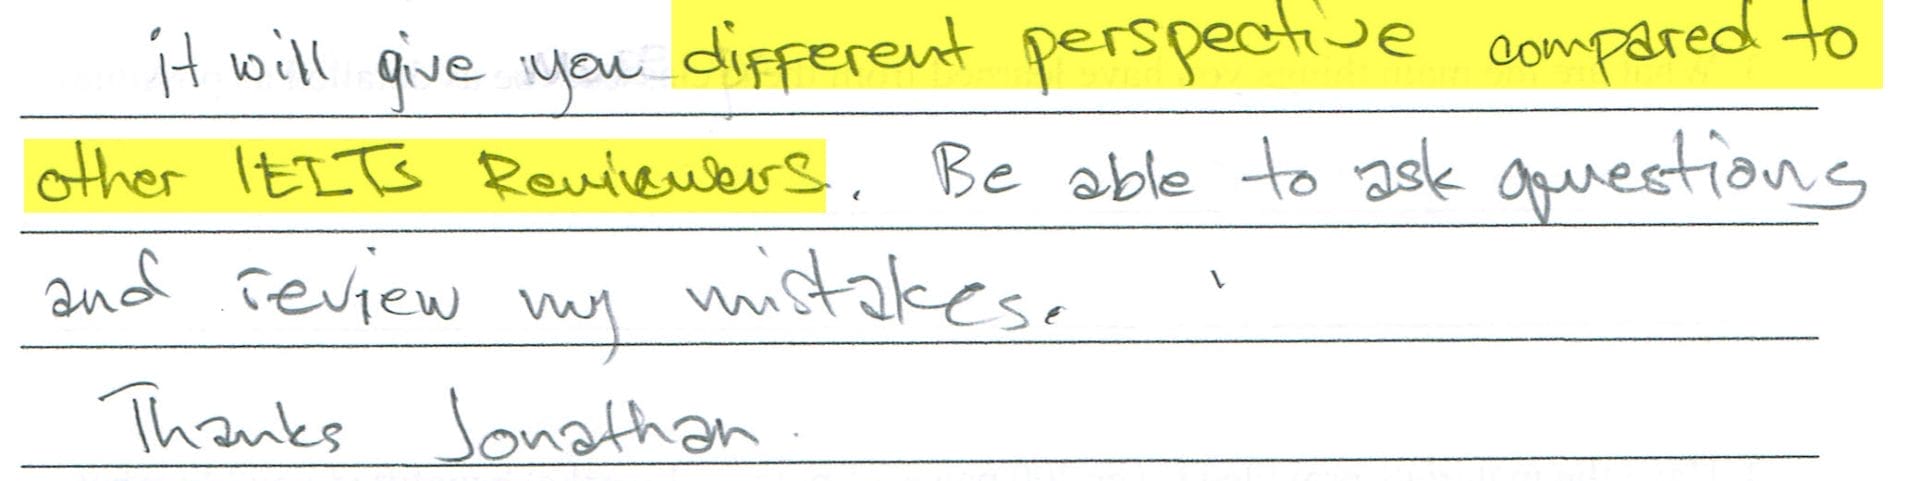 it will give you different perspective compared to
other IELTs Reviewers. Be able to ask questions
and review my mistakes.
Thanks Jonathan.